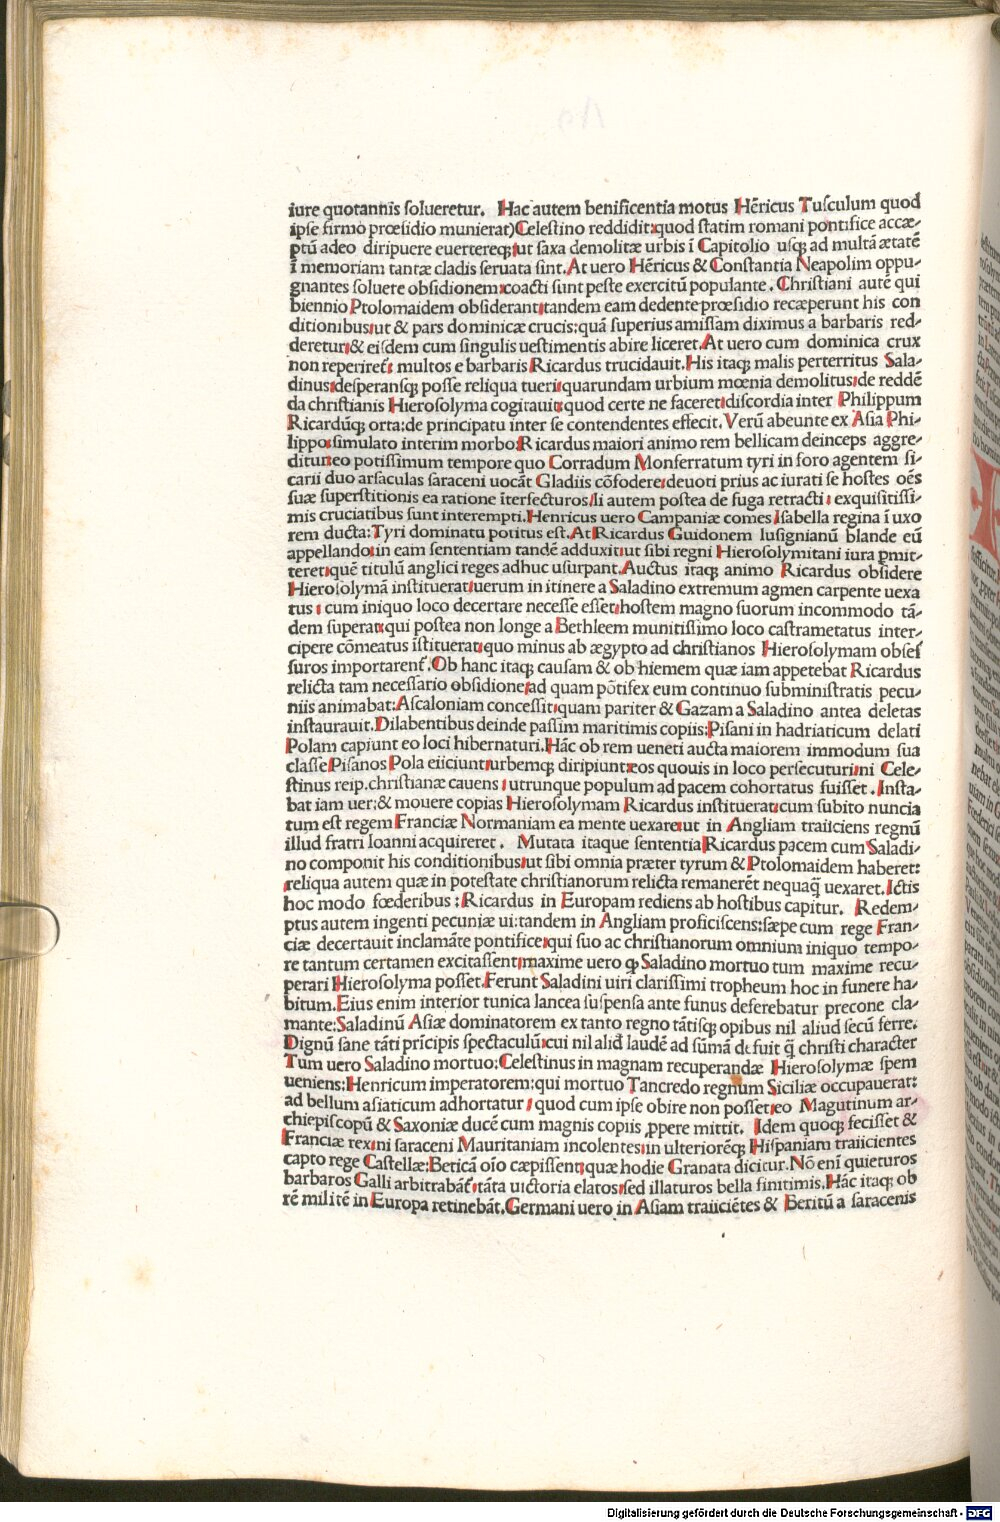 iure quotannis solueretur. Hac autem benificentia motus Hēricus Tusculum quod
ipse firmo prœsidio munierat) Celestino reddidit: quod statim romani pontifice accæ-
ptū adeo diripuere euertereq; ut saxa demolitæ urbis ī Capitolio usq; ad multā ætatē
ī memoriam tantæ cladis seruata sint. At uero Hēricus & Constantia Neapolim oppu-
gnantes soluere obsidionem: coacti sunt peste exercitū populante. Christiani autē qui
biennio Ptolomaidem obsiderant: tandem eam dedente prœsidio recæperunt his con
ditionibus: ut & pars dominicæ crucis: quā superius amissam diximus a barbaris red-
deretur: & eisdem cum singulis uestimentis abire liceret. At uero cum dominica crux
non reperiret: multos e barbaris Ricardus trucidauit. His itaq; malis perterritus Sala-
dinus: desperansq; posse reliqua tueri: quarundam urbium mœnia demolitus: de reddē
da christianis Hierosolyma cogitauit: quod certe ne faceret: discordia inter Philippum
Ricardūq; orta: de principatu inter se contendentes effecit. Verū abeunte ex Asia Phi-
lippo: simulato interim morbo: Ricardus maiori animo rem bellicam deinceps aggre-
ditur: eo potissimum tempore quo Corradum Monferratum tyri in foro agentem si-
carii duo arsaculas saraceni uocāt Gladiis cōfodere: deuoti prius ac iurati se hostes oēs
suæ superstitionis ea ratione īterfecturos: Ii autem postea de fuga retracti: exquisitissi-
mis cruciatibus sunt interempti. Henricus uero Campaniæ comes Isabella regina ī uxo
rem ducta: Tyri dominatu potitus est. At Ricardus Guidonem lusignianū blande eū
appellando: in eam sententiam tandē adduxit: ut sibi regni Hierosolymitani iura ꝑmit-
teret: quē titulū anglici reges adhuc usurpant. Auctus itaq; animo Ricardus obsidere
Hierosolymā instituerat: uerum in itinere a Saladino extremum agmen carpente uexa
tus: cum iniquo loco decertare necesse esset: hostem magno suorum incommodo tā-
dem superat: qui postea non longe a Bethleem munitissimo loco castrametatus inter-
cipere cōmeatus īstituerat: quo minus ab ægypto ad christianos Hierosolymam obses
suros importarent. Ob hanc itaq; causam & ob hiemem quæ iam appetebat Ricardus
relicta tam necessario obsidione: ad quam pōtifex eum continuo subministratis pecu-
niis animabat: Ascaloniam concessit: quam pariter & Gazam a Saladino antea deletas
instaurauit. Dilabentibus deinde passim maritimis copiis: Pisani in hadriaticum delati
Polam capiunt eo loci hibernaturi. Hāc ob rem ueneti aucta maiorem immodum sua
classe Pisanos Pola eiiciunt: urbemq; diripiunt: eos quouis in loco persecuturi: ni Cele-
stinus reip. christianæ cauens: utrunque populum ad pacem cohortatus fuisset. Insta-
bat iam uer: & mouere copias Hierosolymam Ricardus instituerat: cum subito nuncia
tum est regem Franciæ Normaniam ea mente uexare: ut in Angliam traiiciens regnū
illud fratri Ioanni acquireret. Mutata itaque sententia Ricardus pacem cum Saladi-
no componit his conditionibus: ut sibi omnia præter tyrum & Ptolomaidem haberet:
reliqua autem quæ in potestate christianorum relicta remanerēt nequaq̄ uexaret. Ictis
hoc modo fœderibus: Ricardus in Europam rediens ab hostibus capitur. Redem-
ptus autem ingenti pecuniæ ui: tandem in Angliam proficiscens: sæpe cum rege Fran-
ciæ decertauit inclamāte pontifice: qui suo ac christianorum omnium iniquo tempo-
re tantum certamen excitassent: maxime uero ꝙ Saladino mortuo tum maxime recu-
perari Hierosolyma posset. Ferunt Saladini uiri clarissimi tropheum hoc in funere ha-
bitum. Eius enim interior tunica lancea suspensa ante funus deferebatur precone cla-
mante: Saladinū Asiæ dominatorem ex tanto regno tātisq; opibus nil aliud secū ferre.
Dignū sane tāti prīcipis spectaculū: cui nil aliđ laudē ad sūmā defuit q̄ christi character
Tum uero Saladino mortuo: Celestinus in magnam recuperandæ Hierosolymæ spem
ueniens: Henricum imperatorem: qui mortuo Tancredo regnum Siciliæ occupauerat:
ad bellum asiaticum adhortatur: quod cum ipse obire non posset: eo Magutinum ar-
chiepiscopū & Saxoniæ ducē cum magnis copiis ꝓpere mittit. Idem quoq; fecisset &
Franciæ rex: ni saraceni Mauritaniam incolentes: in ulteriorēq; Hispaniam traiicientes
capto rege Castellæ: Beticā oīo cæpissent: quæ hodie Granata dicitur. Nō enī quieturos
barbaros Galli arbitrabāt: tāta uictoria elatos: sed illaturos bella finitimis. Hāc itaq; ob
rē militē in Europa retinebāt. Germani uero in Asiam traiiciētes & Beritū a saracenis
Digitalisierung gefördert durch die Deutsche Forschungsgemeinschaft - DFG